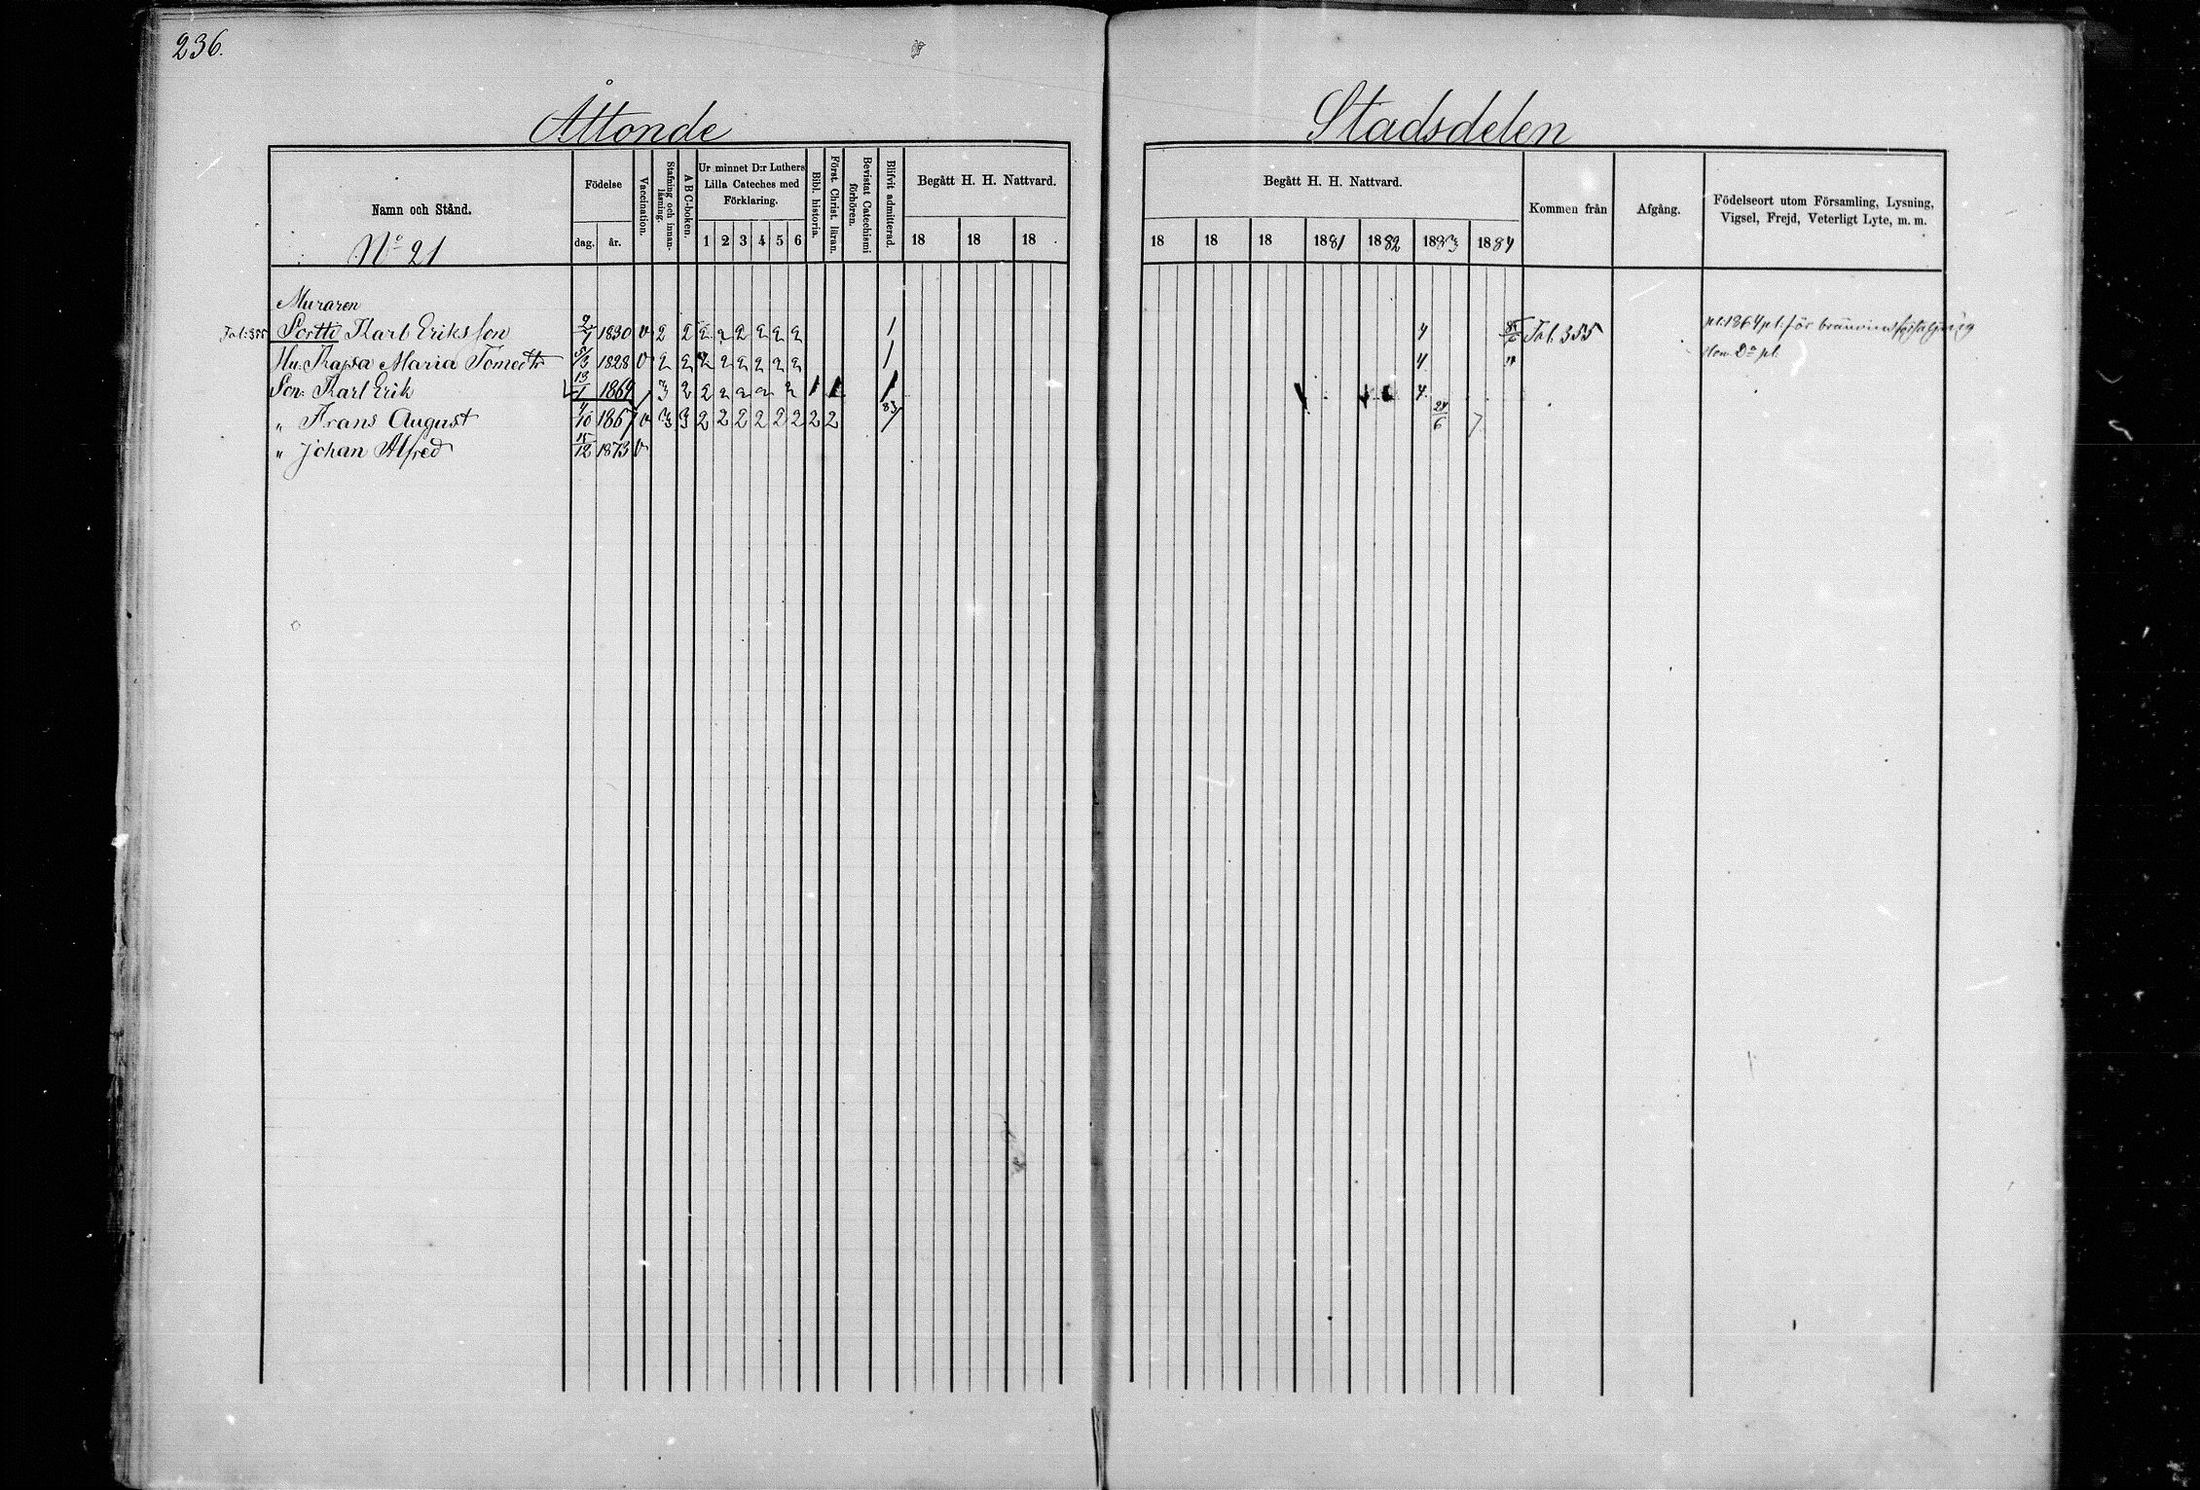 236.
Åttonde
Stadsdelen
Namn och Stånd.
No 21
Födelse
dag. år.
Vaccination.
Stafning och innanläsning.
A B C-boken.
Ur minnet D:r Luthers
Lilla Cateches med
Förklaring.
1 2 3 4 5 6
Bibl. historia.
Först. Christ. läran.
Bevistat Catechismi förhören.
Blifvit admitterad.
Begått H. H. Nattvard.
18 18 18
Begått H. H. Nattvard.
18 18 18 1881 1882 1883 1884
Kommen från
Afgång.
Födelseort utom Församling, Lysning,
Vigsel, Frejd, Veterligt Lyte, m. m.
Muraren
Tal. 355 Karl Eriksson 1830 v 2 2 2 2 2 2 2 2 1 4 Tal. 355 pl. 1864 pl. för bränvinsförsäljning
Hu. Kajsa Maria Tomedtr 1828 v 2 2 2 2 2 2 2 2 1 4 " Do pl.
Son: Karl Erik 13/1 1864 3 2 2 2 2 2 2 1 1 1 4
" Frans August 1867 v 3 3 2 2 2 2 2 2 2 2 83 24/6
" Johan Alfred 15/12 1873 v